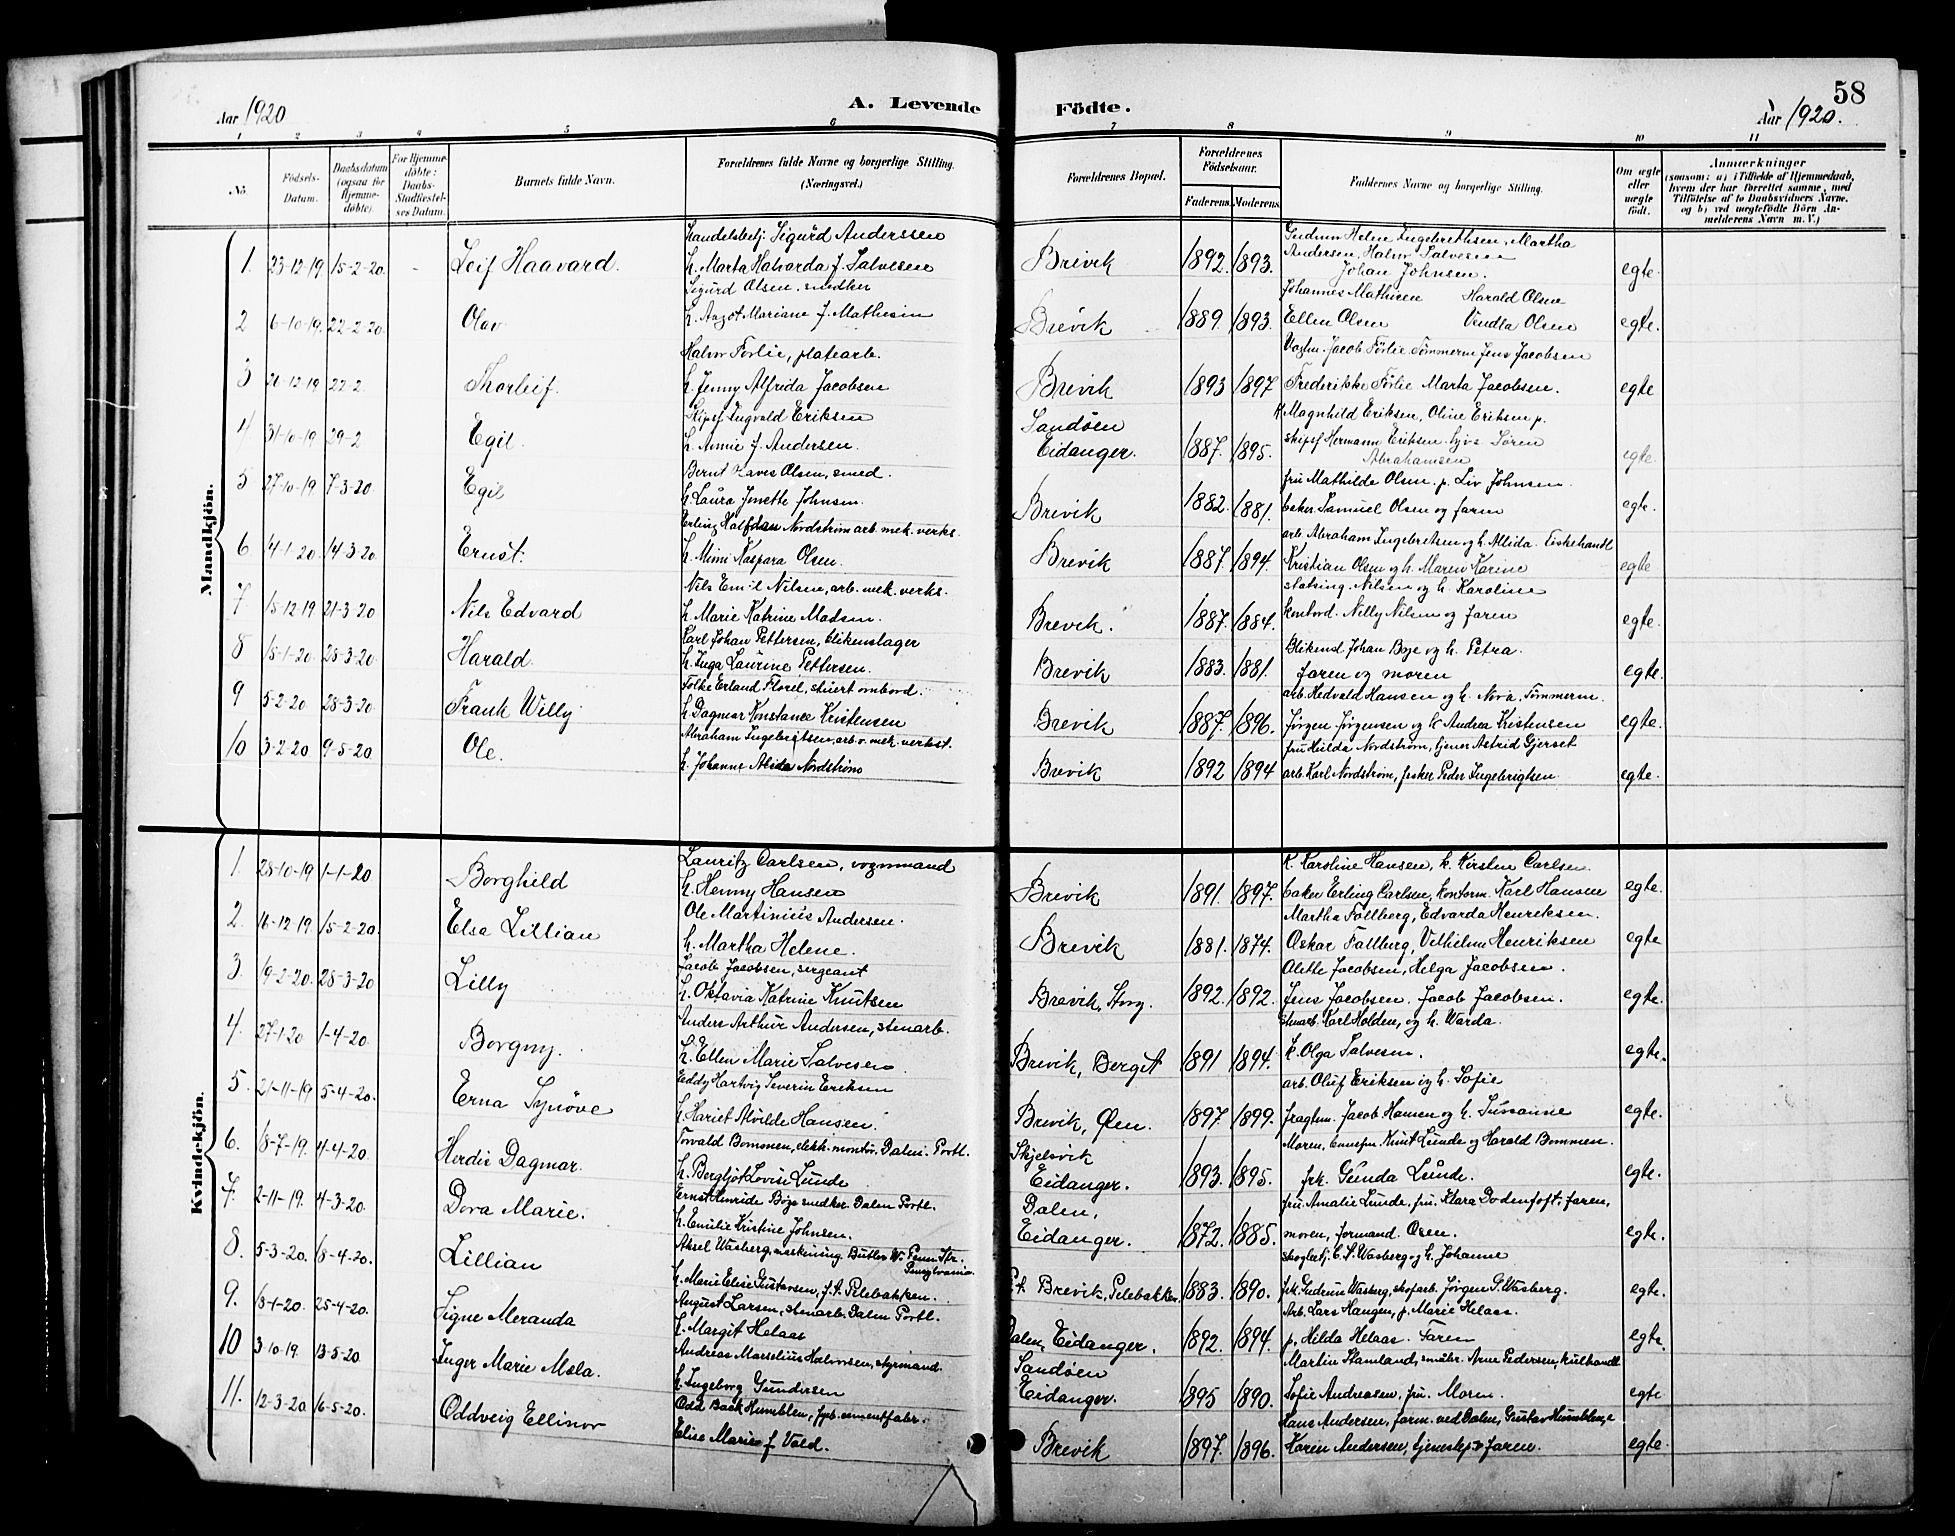 Aar 1920
A. Levende
Födte.
58
Aar 1920.
1 2 3 4 5 6 7 8 9 10 11
No.
Födsels-Datum.
Daabsdatum (ogsaa for Hjemmedöbte).
For Hjemmedöbte: Daabs-Stadfæstelses Datum.
Barnets fulde Navn.
Forældrenes fulde Navne og borgerlige Stilling. (Næringsvei.)
Forældrenes Bopæl.
Forældrenes Födselsaar.
Faderens. Moderens.
Faddernes Navne og borgerlige Stilling.
Om ægte eller uægte födt.
Anmærkninger
(saasom: a) i Tilfælde af Hjemmedaab, hvem der har forrettet samme, med Tilföielse af to Daabsvidners Navne, og b) ved uægtefödte Börn Anmelderens Navn m. V.)
Mandkjön.
1. 23-12-19 15-2-20 - Leif Haavard.
Handelsbetj. Sigurd Anderssen
h. Marta Halvarda f. Salvesen
Brevik 1892. 1893.
Gudrun Helene Ingebrethsen, Martha
Andersen, Halvor Salvesen
Johan Johnsen.
egte.
2 6-10-19. 22-2-20 Olav
Sigurd Olsen, snedker
h. Aagot Mariane f. Mathisen
Brevik 1889. 1893.
Johannes Mathisen Harald Olsen
Ellen Olsen Vendla Olsen
egte.
3 22-2. Thorleif.
Halvor Förlie, platearb.
h. Jenny Alfrida Jacobsen
Brevik 1893 1897
Jacob Förlie Tömmerm Jens Jacobsen
Frederikke Förlie Marta Jacobsen.
egte
4 31-10-19 29-2 Egil.
Skipsf Ingvald Eriksen
h. Annie f. Andersen.
Sandöen
Eidanger. 1887. 1895.
Magnhild Eriksen, Oline Eriksen p.
skipsf Hermann Eriksen Sören
Abrahamsen
egte
5 27-10-19 7-3-20 Egil
Bernt Olsen, smed.
h. Laura Jenette Johnsen
Brevik 1882. 1881.
fru Mathilde Olsen. p. Liv Johnsen.
Samuel Olsen og faren
egte.
6 14-1-20. 14-3-20 Ernst.
Erling Halfdan Nordström arb. mek. verks.
h. Mimi Kaspara Olsen.
Brevik 1887. 1894.
arb. Abraham Ingebretsen og h. Alida. Fiskehandl
Kristian Olsen og h. Maren Karine
egte
7 15-12-19 21-3-20 Nils Edvard
Nils Emil Nilsen, arb. mek. verks.
h. Marie Katrine Madsen.
Brevik. 1887. 1884.
Nilsen og h. Karoline
Nelly Nilsen og faren
egte.
8 15-1-20. 28-3-20. Harald.
Karl Johan Pettersen, blikenslager
h. Inga Laurine Pettersen.
Brevik 1883. 1881.
Blikensl Johan Bye og h. Petra.
faren og moren
egte.
9 5-2-20 28-3-20 Frank Willy
Folke Erland Florel, stuert ombord.
h. Dagmar Konstance Kristensen
Brevik 1887. 1896.
arb. Hedvald Hansen og h. Nora, Tömmerm.
Jörgen Jörgensen og h Andrea Kristensen
egte.
10 3-2-20 9-5-20 Ole.
Abraham Ingebretsen, arb. v. mek. verkst.
h. Johanne Alida Nordström
Brevik 1892 1894
fru Hulda Nordström, tjener Astrid Gjerset
arb. Karl Nordström, fisker Peder Ingebrigtsen.
egte.
Kvindekjön.
1. 28-10-19 1-1-20 Borghild
Lauritz Carlsen, vognmand
h. Henny Hansen
Brevik 1891. 1897.
K. Karoline Hansen, k. Kirsten Carlsen
baker Erling Carlsen, kontorm. Karl Hansen
egte.
2. 16-12-19. 15-2-20. Elsa Lillian
Ole Martinius Andersen.
h. Martha Helene.
Brevik 1881. 1874.
Martha Fallberg, Edvarda Henriksen.
Oskar Fallberg, Vilhelm Henriksen
egte
3. 19-2-20. 28-3-20 Lilly
Jacob Jacobsen, sergeant
h. Oktavia Katrine Knutsen
Brevik, Storg. 1892. 1892.
Alette Jacobsen, Helga Jacobsen.
Jens Jacobsen. Jacob Jacobsen.
egte.
4. 27-1-20 1-4-20. Borgny.
Anders Arthur Andersen, stenarb.
h. Ellen Marie Salvesen.
Brevik, Berget 1891 1894.
Stenarb. Karl Holden, og h. Warda.
k. Olga Salvesen.
egte.
5. 21-11-19 5-4-20. Erna Synöve
Eddy Hartvig Severin Eriksen
h. Hariet Alvilde Hansen.
Brevik, Öen. 1897. 1899.
arb. Oluf Eriksen og h. Sofie
fragtm. Jacob Hansen og h. Susanne
egte.
6. 18-7-19. 4-4-20. Herdis Dagmar.
Torvald Bommen, elekt. montör. Dalen Portl.
h. Bergljot Lovise Lunde
Skjelsvik
Eidanger. 1893. 1895.
Moren, Knut Lunde og Harald Bommen.
frk. Gunda Lunde.
egte.
7. 2-11-19. 4-3-20. Dora Marie.
Ernst Henride Boje snedker. Dalen Portl.
h. Emilie Kristine Johnsen.
Dalen,
Eidanger. 1872. 1885.
fru Amalie Lunde, fru. Klara Bodenfoft, faren,
moren, formand Osen.
egte.
8. 5-3-20. 18-4-20. Lillian
Aksel Wasberg, maskining. Butler W. Penn Str.
Pensylvania.
h. Marie Elise Gustavsen, f. t. Pelebakken.
P.t. Brevik, Pelebakken. 1883. 1890.
skogbetj. C. S. Wasberg og h. Johanne
frk. Gudrun Wasberg, skoparb. Jörgen G. Wasberg.
egte.
9. 13-1-20. 25-4-20. Signe Meranda
August Larsen, stenarb. Dalen Portl.
h. Margit Helaas
Dalen, Eidanger. 1892. 1894.
Arb. Lars Haugen, p. Marie Helaas.
p. Hilda Helaas. Faren
egte.
10 3-10-19. 13-5-20 Inger Marie Mala.
Andreas Marselius Halvorsen, styrmand.
h. Ingeborg Gundersen
Sandöen
Eidanger. 1895 1890.
Martin Stamland, Arne Pedersen, kulhandl
Sofie Andreasen, fru. Moren.
egte
11. 12-3-20 16-5-20. Oddveig Ellinor
Odd Back Humblen, cementfabr.
Elise Marie f Vold.
Brevik 1897. 1896.
Hans Andersen, form. ved Dalen, Gustav Humblen,
Karen Andersen, tjenestep. faren.
egte.